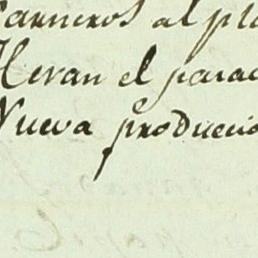 Carneros al pla
llevan el parad
Nueva producció